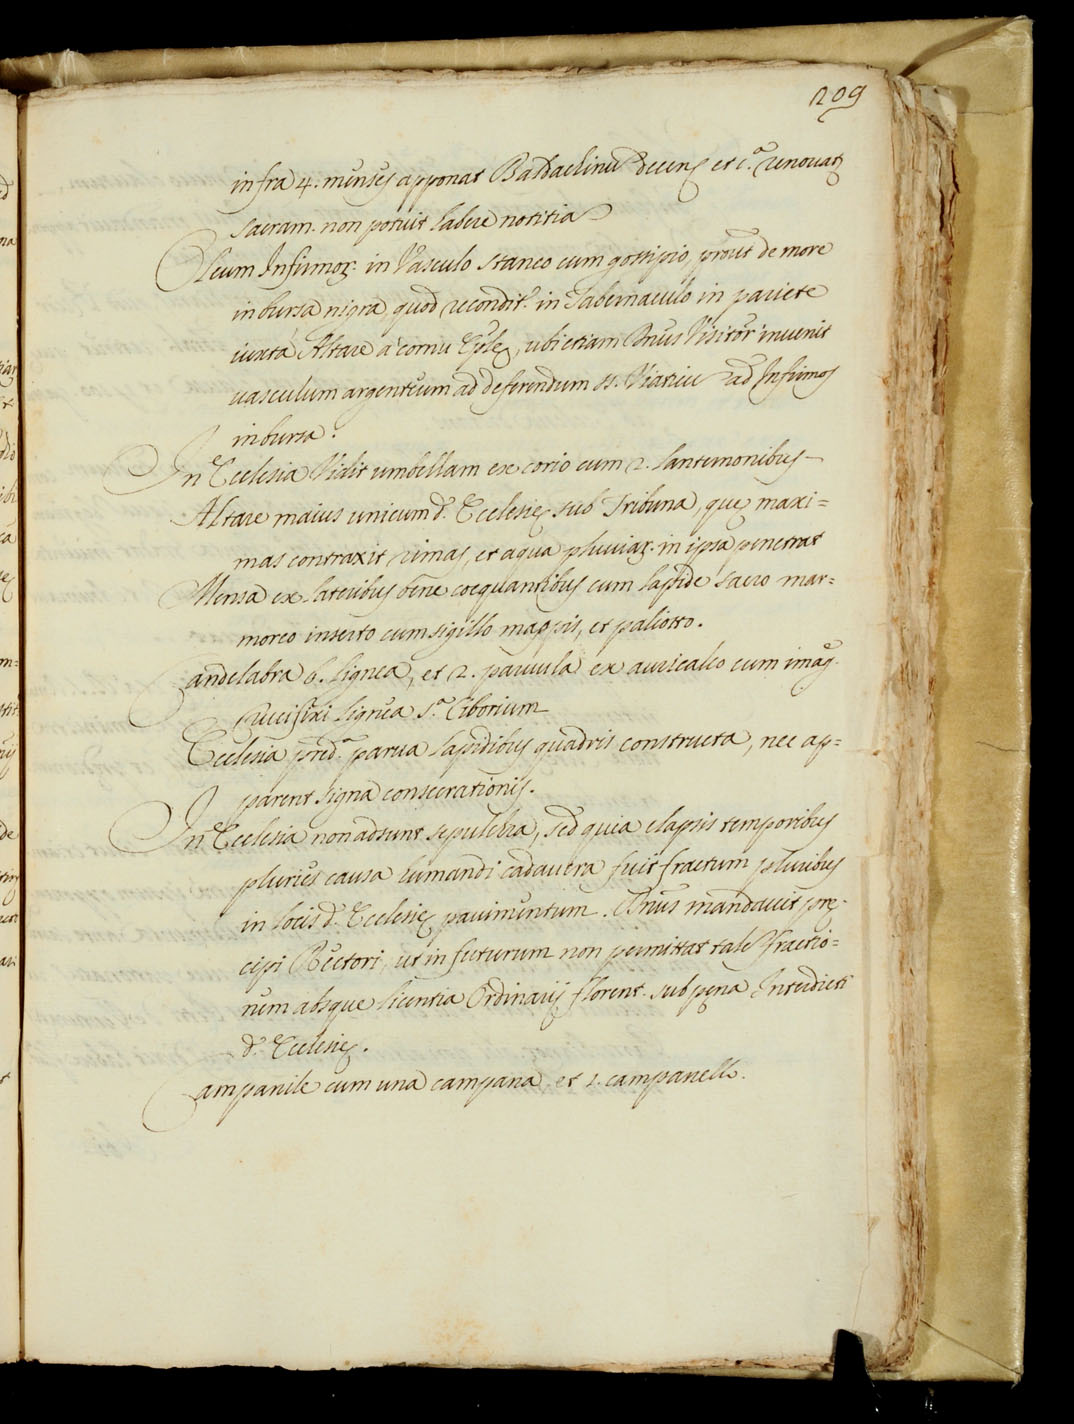 209
infra 4. menses apponat Baldachinũ decens et c.ª renouatꝫ
sacram. non potuit habere notitia
Oleum Infirmoꝝ in Vasculo staneo cum gossipio, prout de more
in bursa nigra, quod recondit.r in Tabernaculo in pariete
iuxta Altare a cornu Eplę, ubi etiam Dñus Visitor inuenit
uasculum argenteum ad deferendum SS. Viaticũ ad Infirmos
in bursa.
In Ecclesia Vidit umbellam ex corio cum 2. lanternonibus
Altare maius unicum d. Ecclesię sub Tribuna, quę maxi=
mas contraxit rimas, et aqua pluuiaꝝ in ipsa penetrat
Mensa ex lateribus bene coequantibus cum lapide sacro mar=
moreo inserto cum sigillo mappis, et paliotto.
Candelabra 6. lignea, et 2. paruula ex auricalco cum imag.e
Crucifixi lignea s.ª Ciborium
Ecclesia pred.ª parua lapidibus quadris constructa, nec ap=
parent signa consecrationis.
In Ecclesia non adsunt sepulchra, sed quia elapsis temporibus
pluries causa humandi cadauera fuit fractum pluribus
in locis d. Ecclesię pauimentum. Dñus mandauit prę=
cipi Rectori, ut in futurum non permittat tale fractio=
nem absque licentia Ordinarij Florent. sub pęna Interdicti
d. Ecclesię.
Campanile cum una campana et 1. campanello.